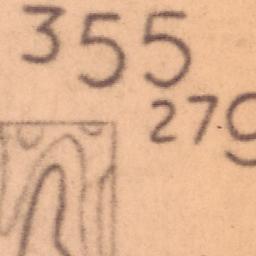 355
279